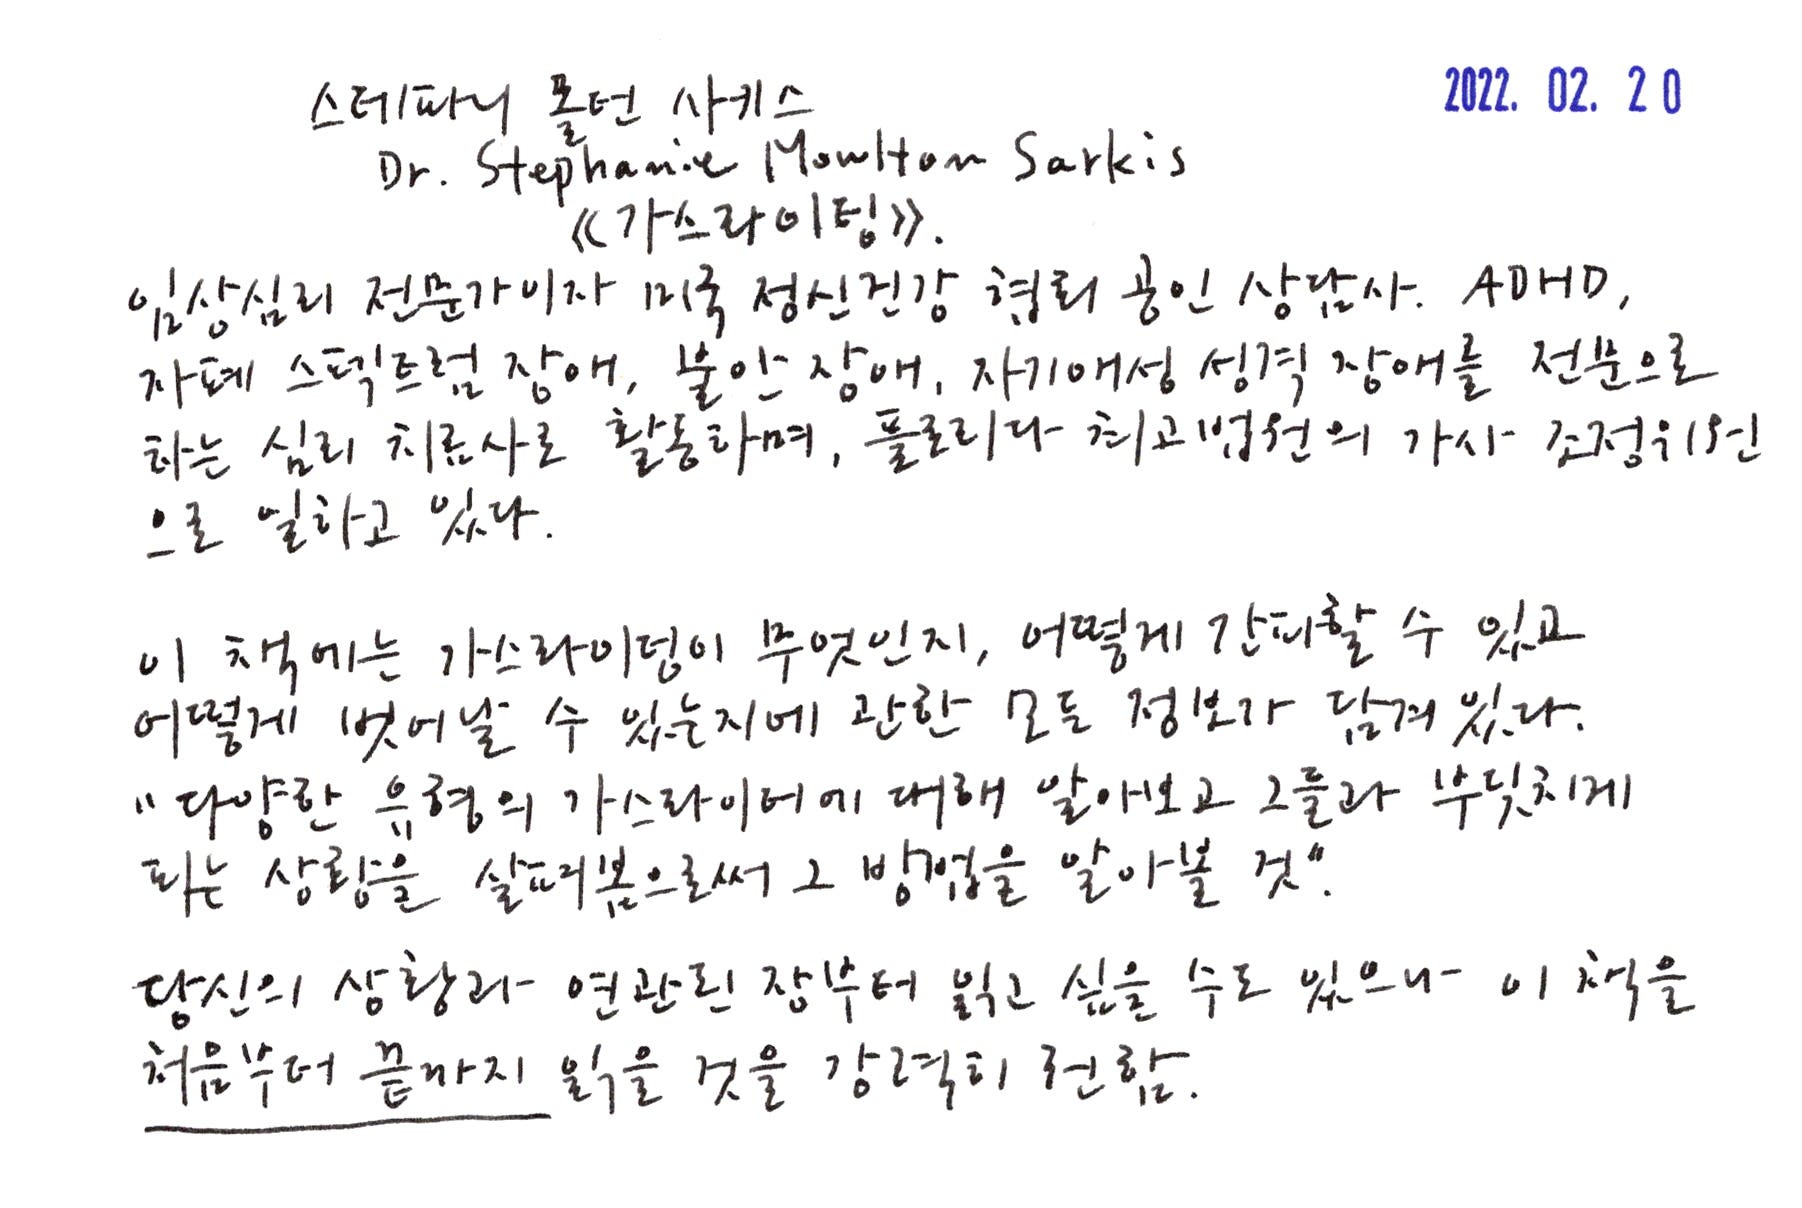 2022. 02. 20
스테파니 몰턴 사키스
Dr. Stephanie Moulton Sarkis
《가스라이팅》.
임상심리 전문가이자 미국 정신건강 협회 공인 상담사. ADHD,
자폐 스펙트럼 장애, 불안 장애, 자기애성 성격 장애를 전문으로
하는 심리 치료사로 활동하며, 플로리다 최고법원의 가사 조정위원
으로 일하고 있다.
이 책에는 가스라이팅이 무엇인지, 어떻게 간파할 수 있고
어떻게 벗어날 수 있는지에 관한 모든 정보가 담겨있다.
"다양한 유형의 가스라이터에 대해 알아보고 그들과 부딪치게
되는 상황을 살펴봄으로써 그 방법을 알아볼 것".
당신의 상황과 연관된 장부터 읽고 싶을 수도 있으나 이 책을
처음부터 끝까지 읽을 것을 강력히 권함.